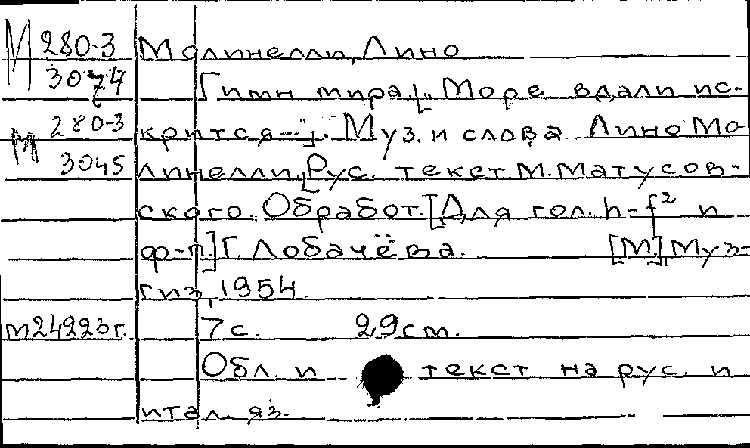 М 280-3 Молинелли, Лино
3074 Гимн мира. ["Море вдали ис-
М 280-3 крится..."]. Муз. и слова Лино Мо-
3045 линелли. [Рус. текст М. Матусов-
ского. Обработ. [Для гол. h-f² и
ф-п.] Г. Лобачёва. [М.], Муз-
гиз, 1954.
м24223г. 7 с. 29 см.
Обл. и текст на рус. и
итал. яз.